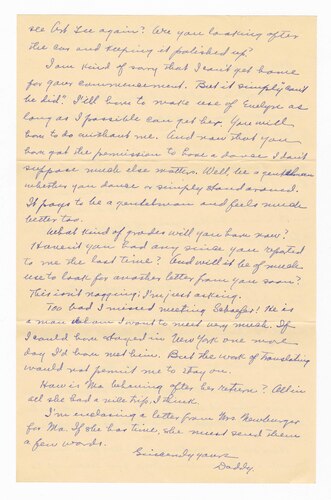 see Art Lee again? Are you looking after
the car and keeping it polished up?
I am kind of sorry that I can't get home
for your commencement. But it simply "can't
be did." I'll have to make use of Evelyn as
long as I possible can get her. You will
have to do without me. And now that you
have got the permission to have a dance I don't
suppose much else matters. Well, be a gentleman
whether you dance or simply stand around.
It pays to be a gentleman and feels much
better too.
What kind of grades will you have now?
Haven't you had any since you reported
to me the last time? And will it be of much
use to look for another letter from you soon?
This isn't nagging, I'm just asking.
Too bad I missed meeting! He is
a man whom I want to meet very much. If
I could have stayed in New York one more
day I'd have met him. But the work of translating
would not permit me to stay on.
How is Ma behaving after her return? All in
all she had a nice trip, I think.
I'm enclosing a letter from Mrs. Newburger
for Ma. If she has time, she must send them
a few words.
Sincerely yours
Daddy.